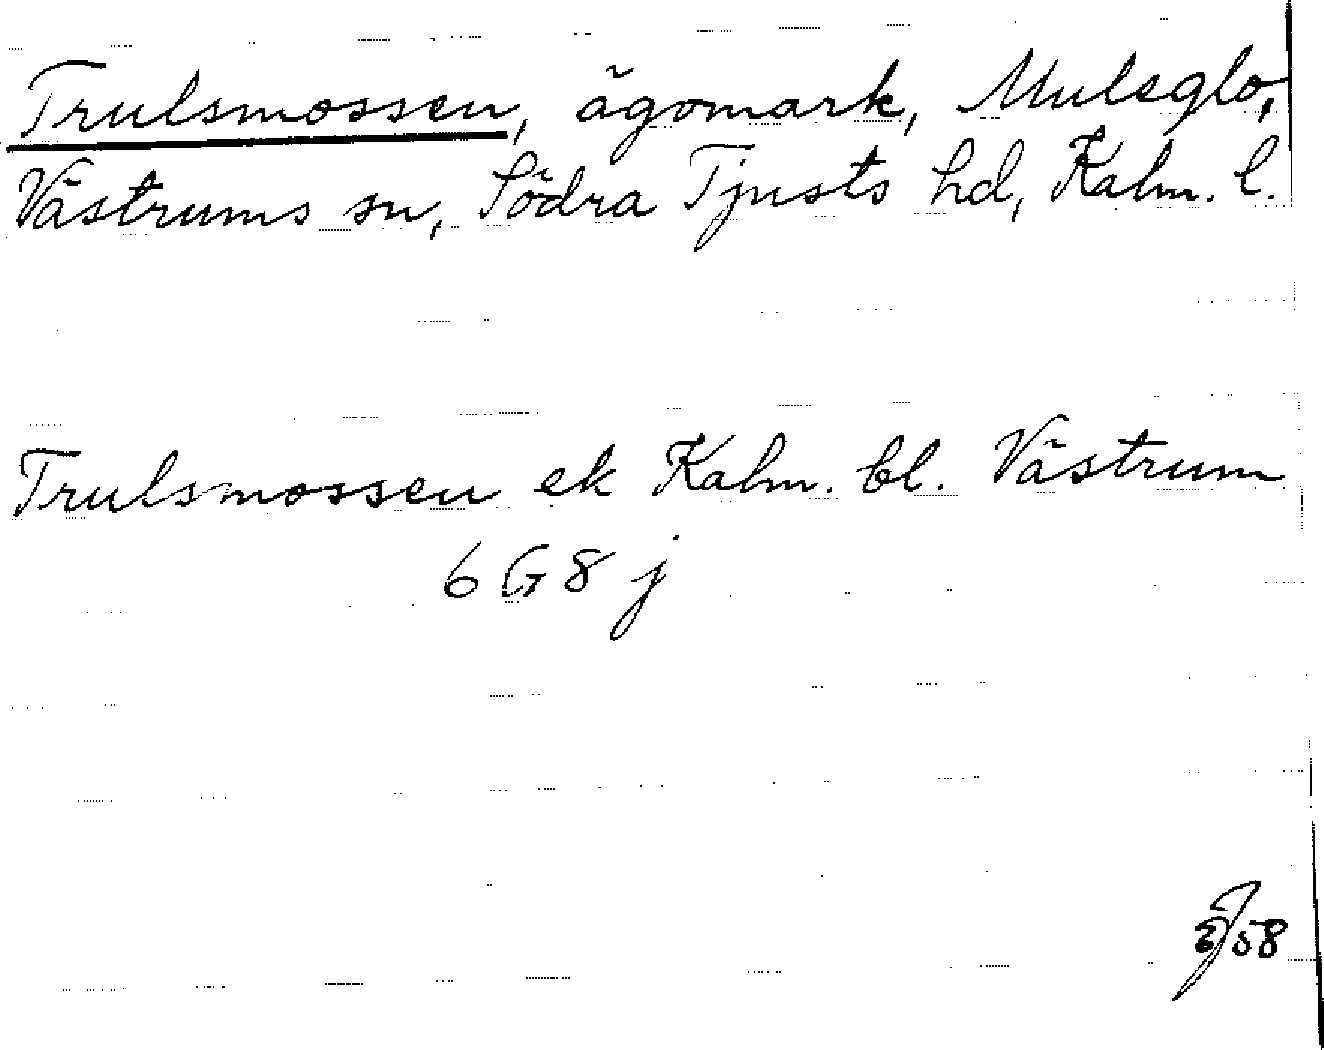 Trulsmossen, ägomark, Mulsglo,
Västrums sn, Södra Tjusts hd, Kalm. l.
Trulsmossen ek Kalm. bl. Västrum
6 G 8 j
58